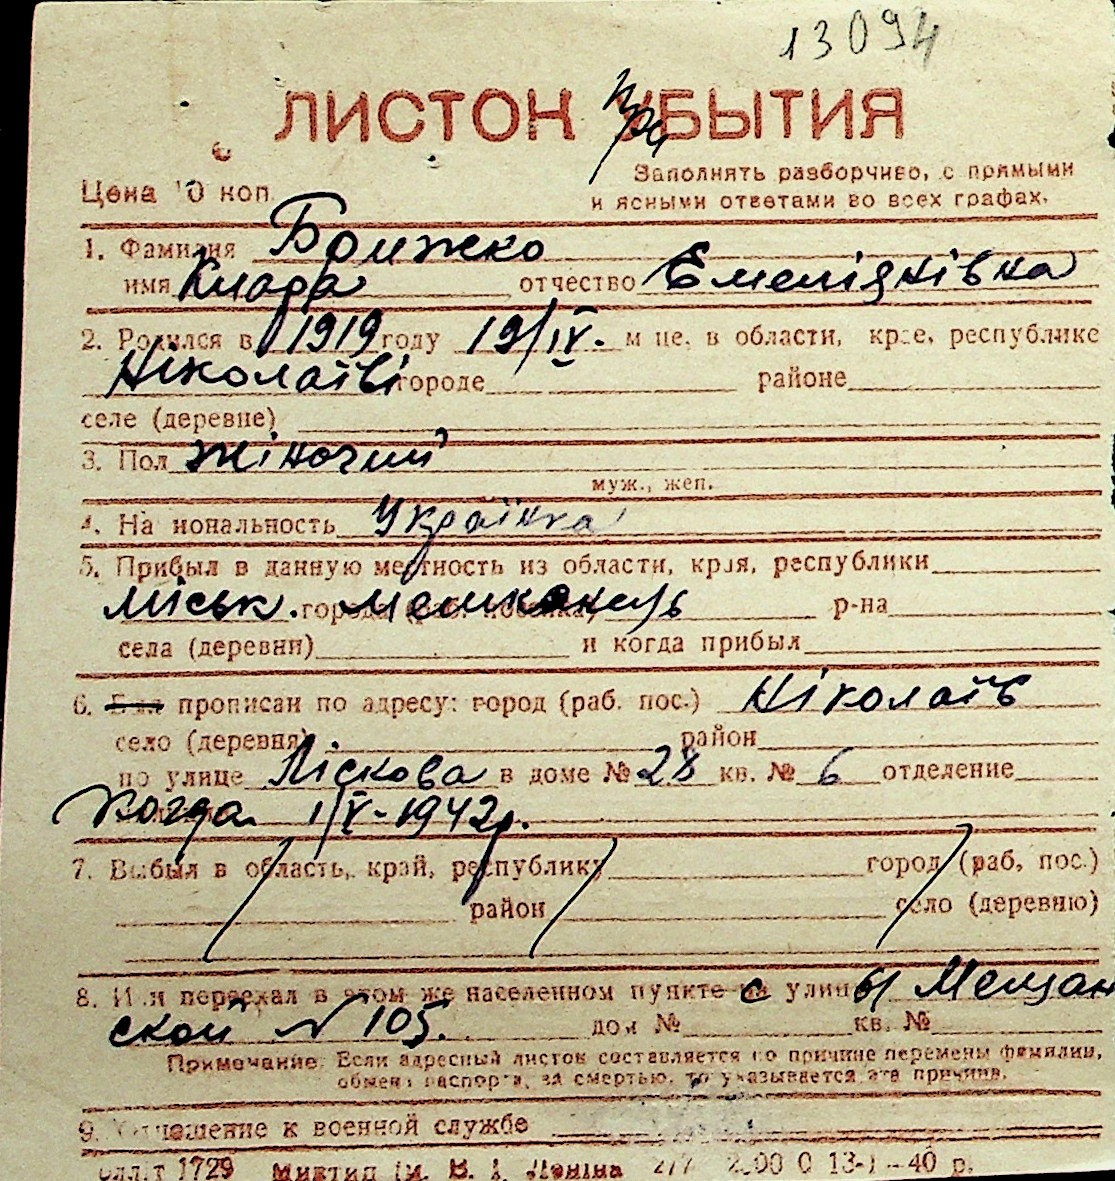 13094
ЛИСТОК УБЫТИЯ при
Цена 10 коп.
Заполнять разборчиво, с прямыми
и ясными ответами во всех графах.
1. Фамилия Брижко
имя Клара отчество Емеліянівна
2. Родился в 1919 году 19/IV. м-це, в области, крае, республике
Ніколаїві городе районе
селе (деревне)
3. Пол жіночий
муж., жен.
4. Национальность Українка
5. Прибыл в данную местность из области, края, республики
міськ. города мешканець р-на
села (деревни) и когда прибыл
6. Был прописан по адресу: город (раб. пос.) Ніколаїв
село (деревня) район
по улице Лїскова в доме № 28 кв. № 6 отделение
когда 1/V-1942 р.
7. Выбыл в область, край, республику город (раб. пос.)
район село (деревню)
8. Или переехал в этом же населенном пункте с улицы Мещан
ской N 105. дом № кв. №
Примечание. Если адресный листок составляется по причине перемены фамилии,
обмена паспорта, за смертью, то указывается эта причина.
9. Отношение к военной службе
1729 40 р.